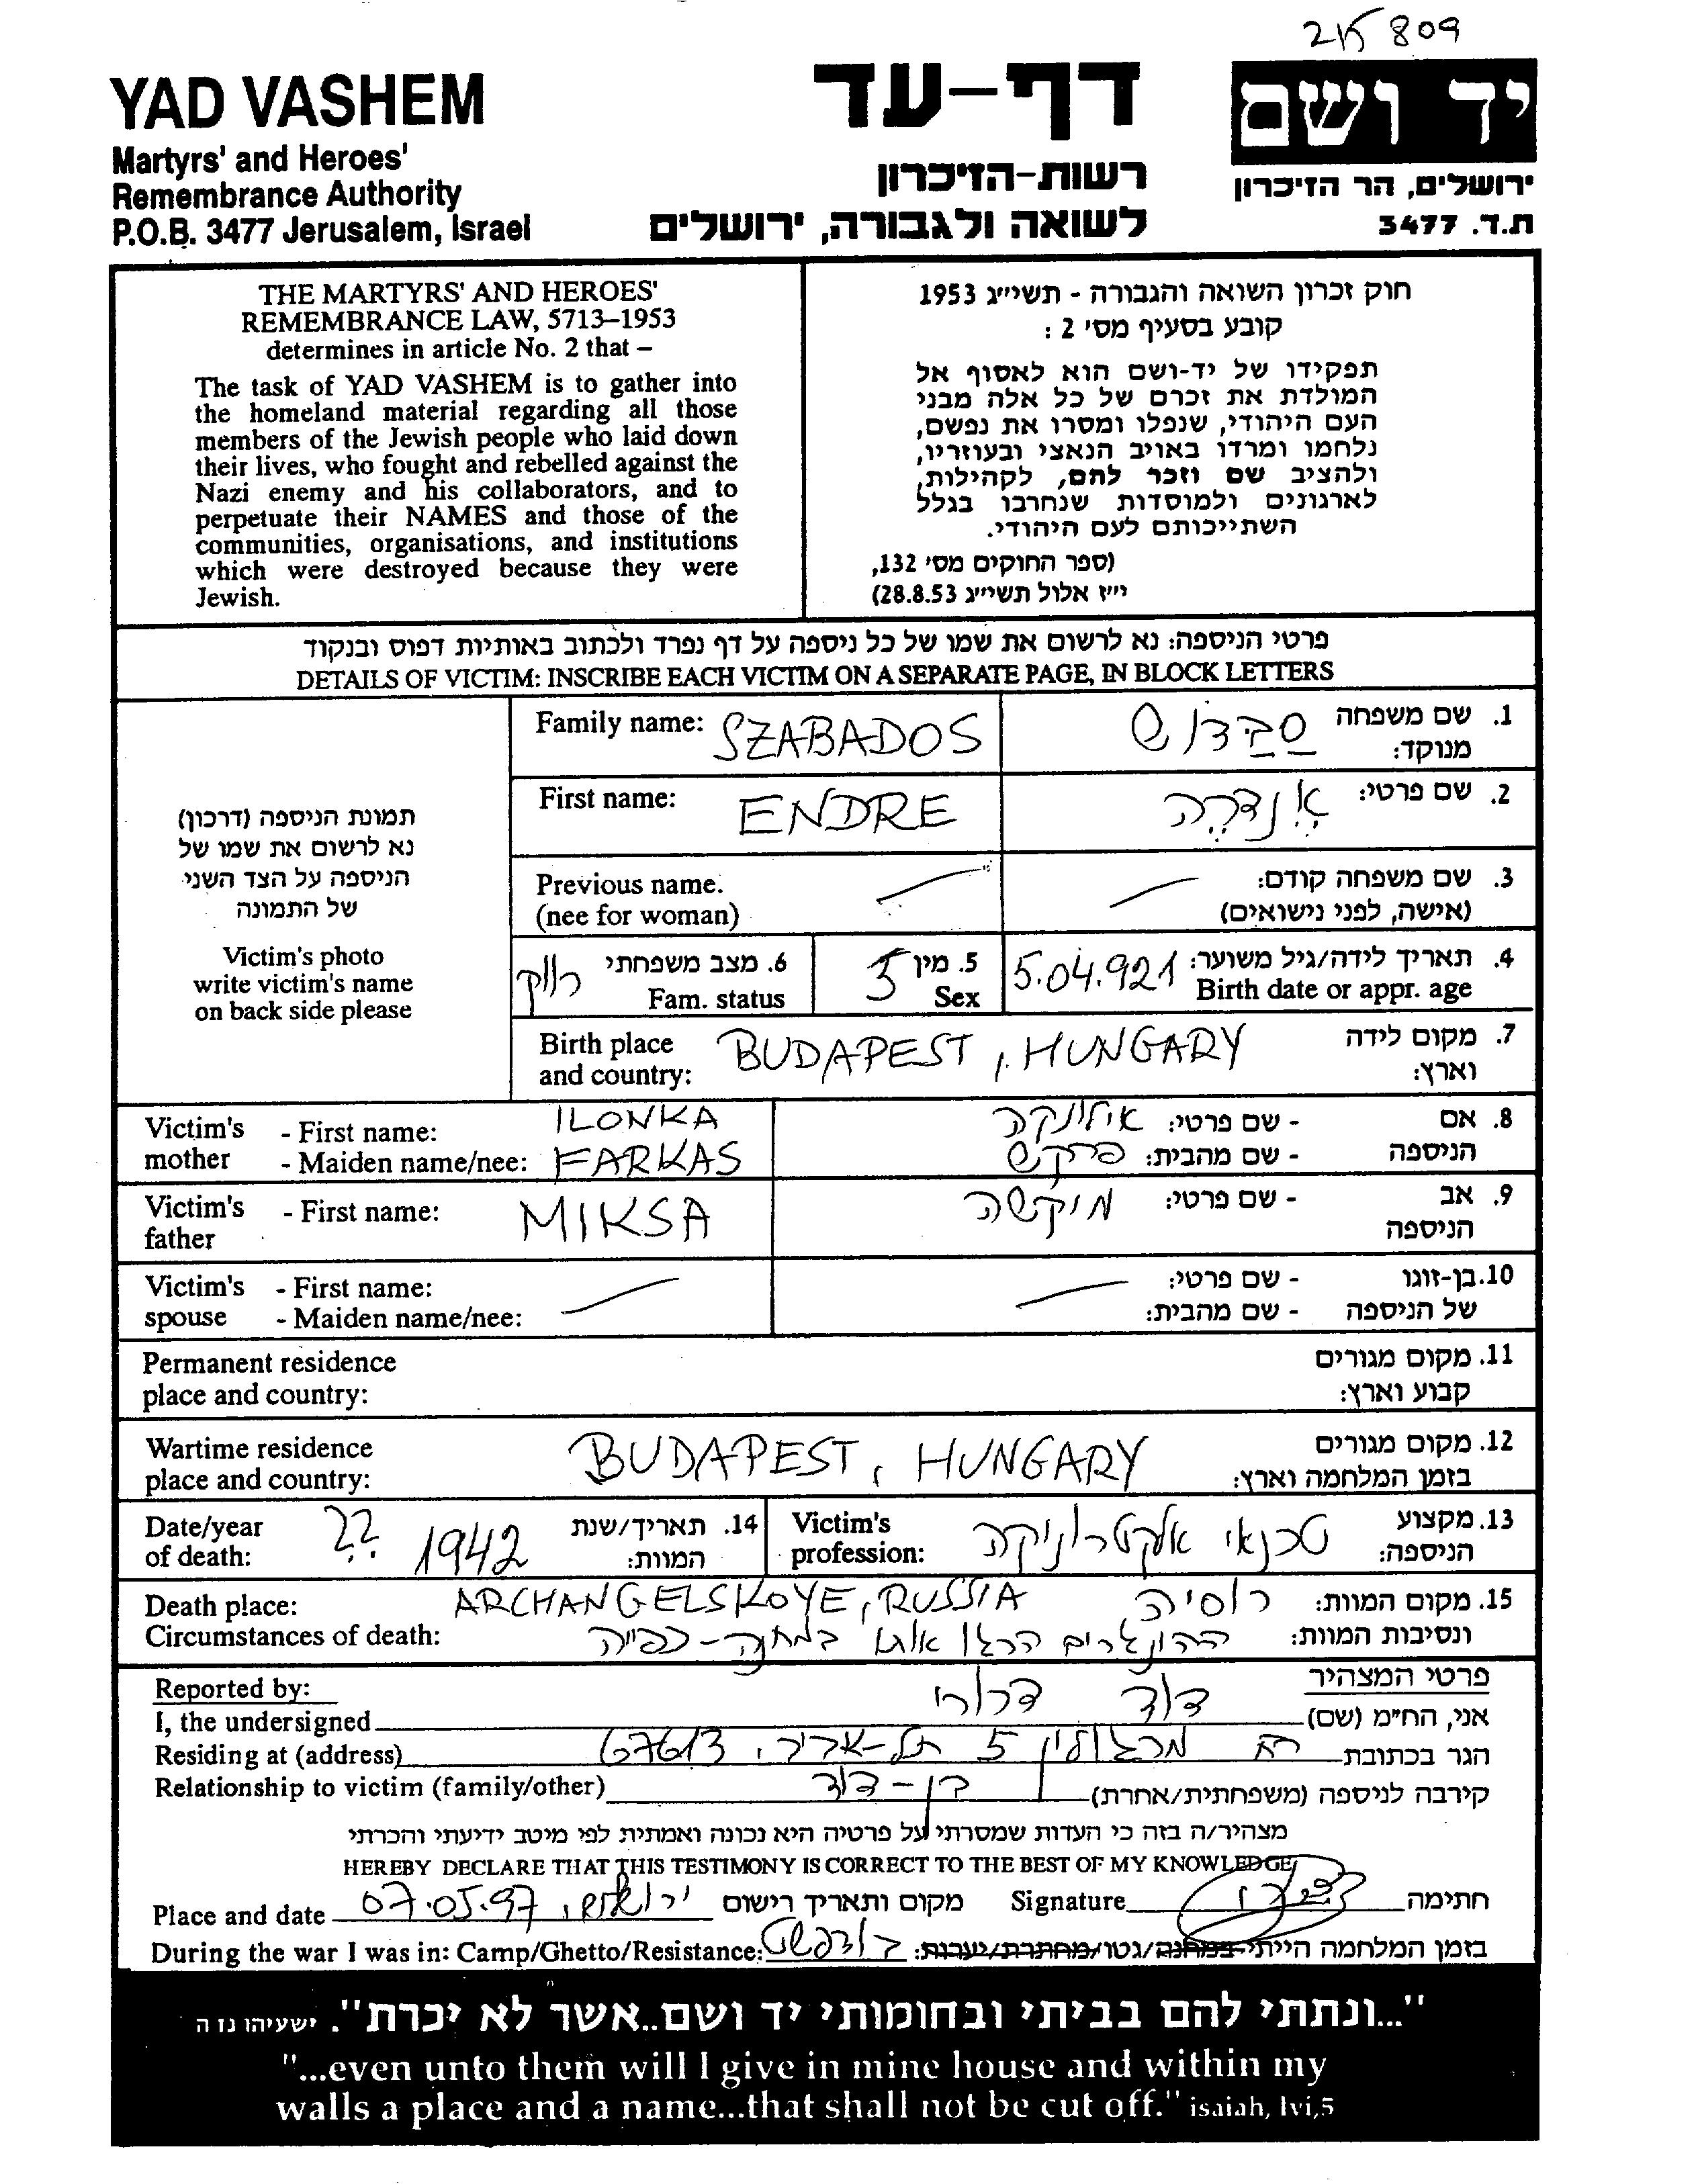 809
YAD VASHEM
Martyrs' and Heroes'
Remembrance Authority
P.O.B. 3477 Jerusalem, Israel
דף-עד
רשות-הזיכרון
לשואה ולגבורה, ירושלים
יד ושם
ירושלים, הר הזיכרון
ת.ד. 3477
THE MARTYRS' AND HEROES'
REMEMBRANCE LAW, 5713–1953
determines in article No. 2 that –
The task of YAD VASHEM is to gather into
the homeland material regarding all those
members of the Jewish people who laid down
their lives, who fought and rebelled against the
Nazi enemy and his collaborators, and to
perpetuate their NAMES and those of the
communities, organisations, and institutions
which were destroyed because they were
Jewish.
חוק זכרון השואה והגבורה - תשי״ג 1953
קובע בסעיף מס׳ 2 :
תפקידו של יד-ושם הוא לאסוף אל
המולדת את זכרם של כל אלה מבני
העם היהודי, שנפלו ומסרו את נפשם,
נלחמו ומרדו באויב הנאצי ובעוזריו,
ולהציב שם וזכר להם, לקהילות,
לארגונים ולמוסדות שנחרבו בגלל
השתייכותם לעם היהודי.
(ספר החוקים מס׳ 132,
י״ז אלול תשי״ג 28.8.53)
פרטי הניספה: נא לרשום את שמו של כל ניספה על דף נפרד ולכתוב באותיות דפוס ובנקוד
DETAILS OF VICTIM: INSCRIBE EACH VICTIM ON A SEPARATE PAGE, IN BLOCK LETTERS
תמונת הניספה (דרכון)
נא לרשום את שמו של
הניספה על הצד השני
של התמונה
Victim's photo
write victim's name
on back side please
Family name: SZABADOS סַבַּדוֹש 1. שם משפחה
מנוקד:
First name: ENDRE אֶנְדְרֶה 2. שם פרטי:
Previous name. 3. שם משפחה קודם:
(nee for woman) (אישה, לפני נישואים)
רווק 6. מצב משפחתי ז 5. מין 5.04.921 4. תאריך לידה/גיל משוער:
Fam. status Sex Birth date or appr. age
Birth place BUDAPEST, HUNGARY 7. מקום לידה
and country: וארץ:
Victim's - First name: ILONKA אילונקה - שם פרטי: 8. אם
mother - Maiden name/nee: FARKAS פרקש - שם מהבית: הניספה
Victim's - First name: MIKSA מיקשה - שם פרטי: 9. אב
father הניספה
Victim's - First name: - שם פרטי: 10. בן-זוגו
spouse - Maiden name/nee: - שם מהבית: של הניספה
Permanent residence 11. מקום מגורים
place and country: קבוע וארץ:
Wartime residence BUDAPEST, HUNGARY 12. מקום מגורים
place and country: בזמן המלחמה וארץ:
Date/year ?? 1942 14. תאריך/שנת Victim's טכנאי אלקטרוניקה 13. מקצוע
of death: המוות: profession: הניספה:
Death place: ARCHANGELSKOYE, RUSSIA רוסיה, 15. מקום המוות:
Circumstances of death: ההונגרים הרגו אותו במחנה-כפייה ונסיבות המוות:
Reported by: פרטי המצהיר
I, the undersigned דוד דרורי אני, הח״מ (שם)
Residing at (address) רח' מרגולין 5 תל-אביב, 67613 הגר בכתובת
Relationship to victim (family/other) בן-דוד קירבה לניספה (משפחתית/אחרת)
מצהיר/ה בזה כי העדות שמסרתי על פרטיה היא נכונה ואמתית לפי מיטב ידיעתי והכרתי
HEREBY DECLARE THAT THIS TESTIMONY IS CORRECT TO THE BEST OF MY KNOWLEDGE
Place and date 07.05.97 ירושלים, מקום ותאריך רישום Signature חתימה
During the war I was in: Camp/Ghetto/Resistance: בודפשט בזמן המלחמה הייתי במחנה/גטו/מחתרת/יערות:
"...ונתתי להם בביתי ובחומותי יד ושם..אשר לא יכרת". ישעיהו נז ה
"...even unto them will I give in mine house and within my
walls a place and a name...that shall not be cut off." isaiah, lvi,5